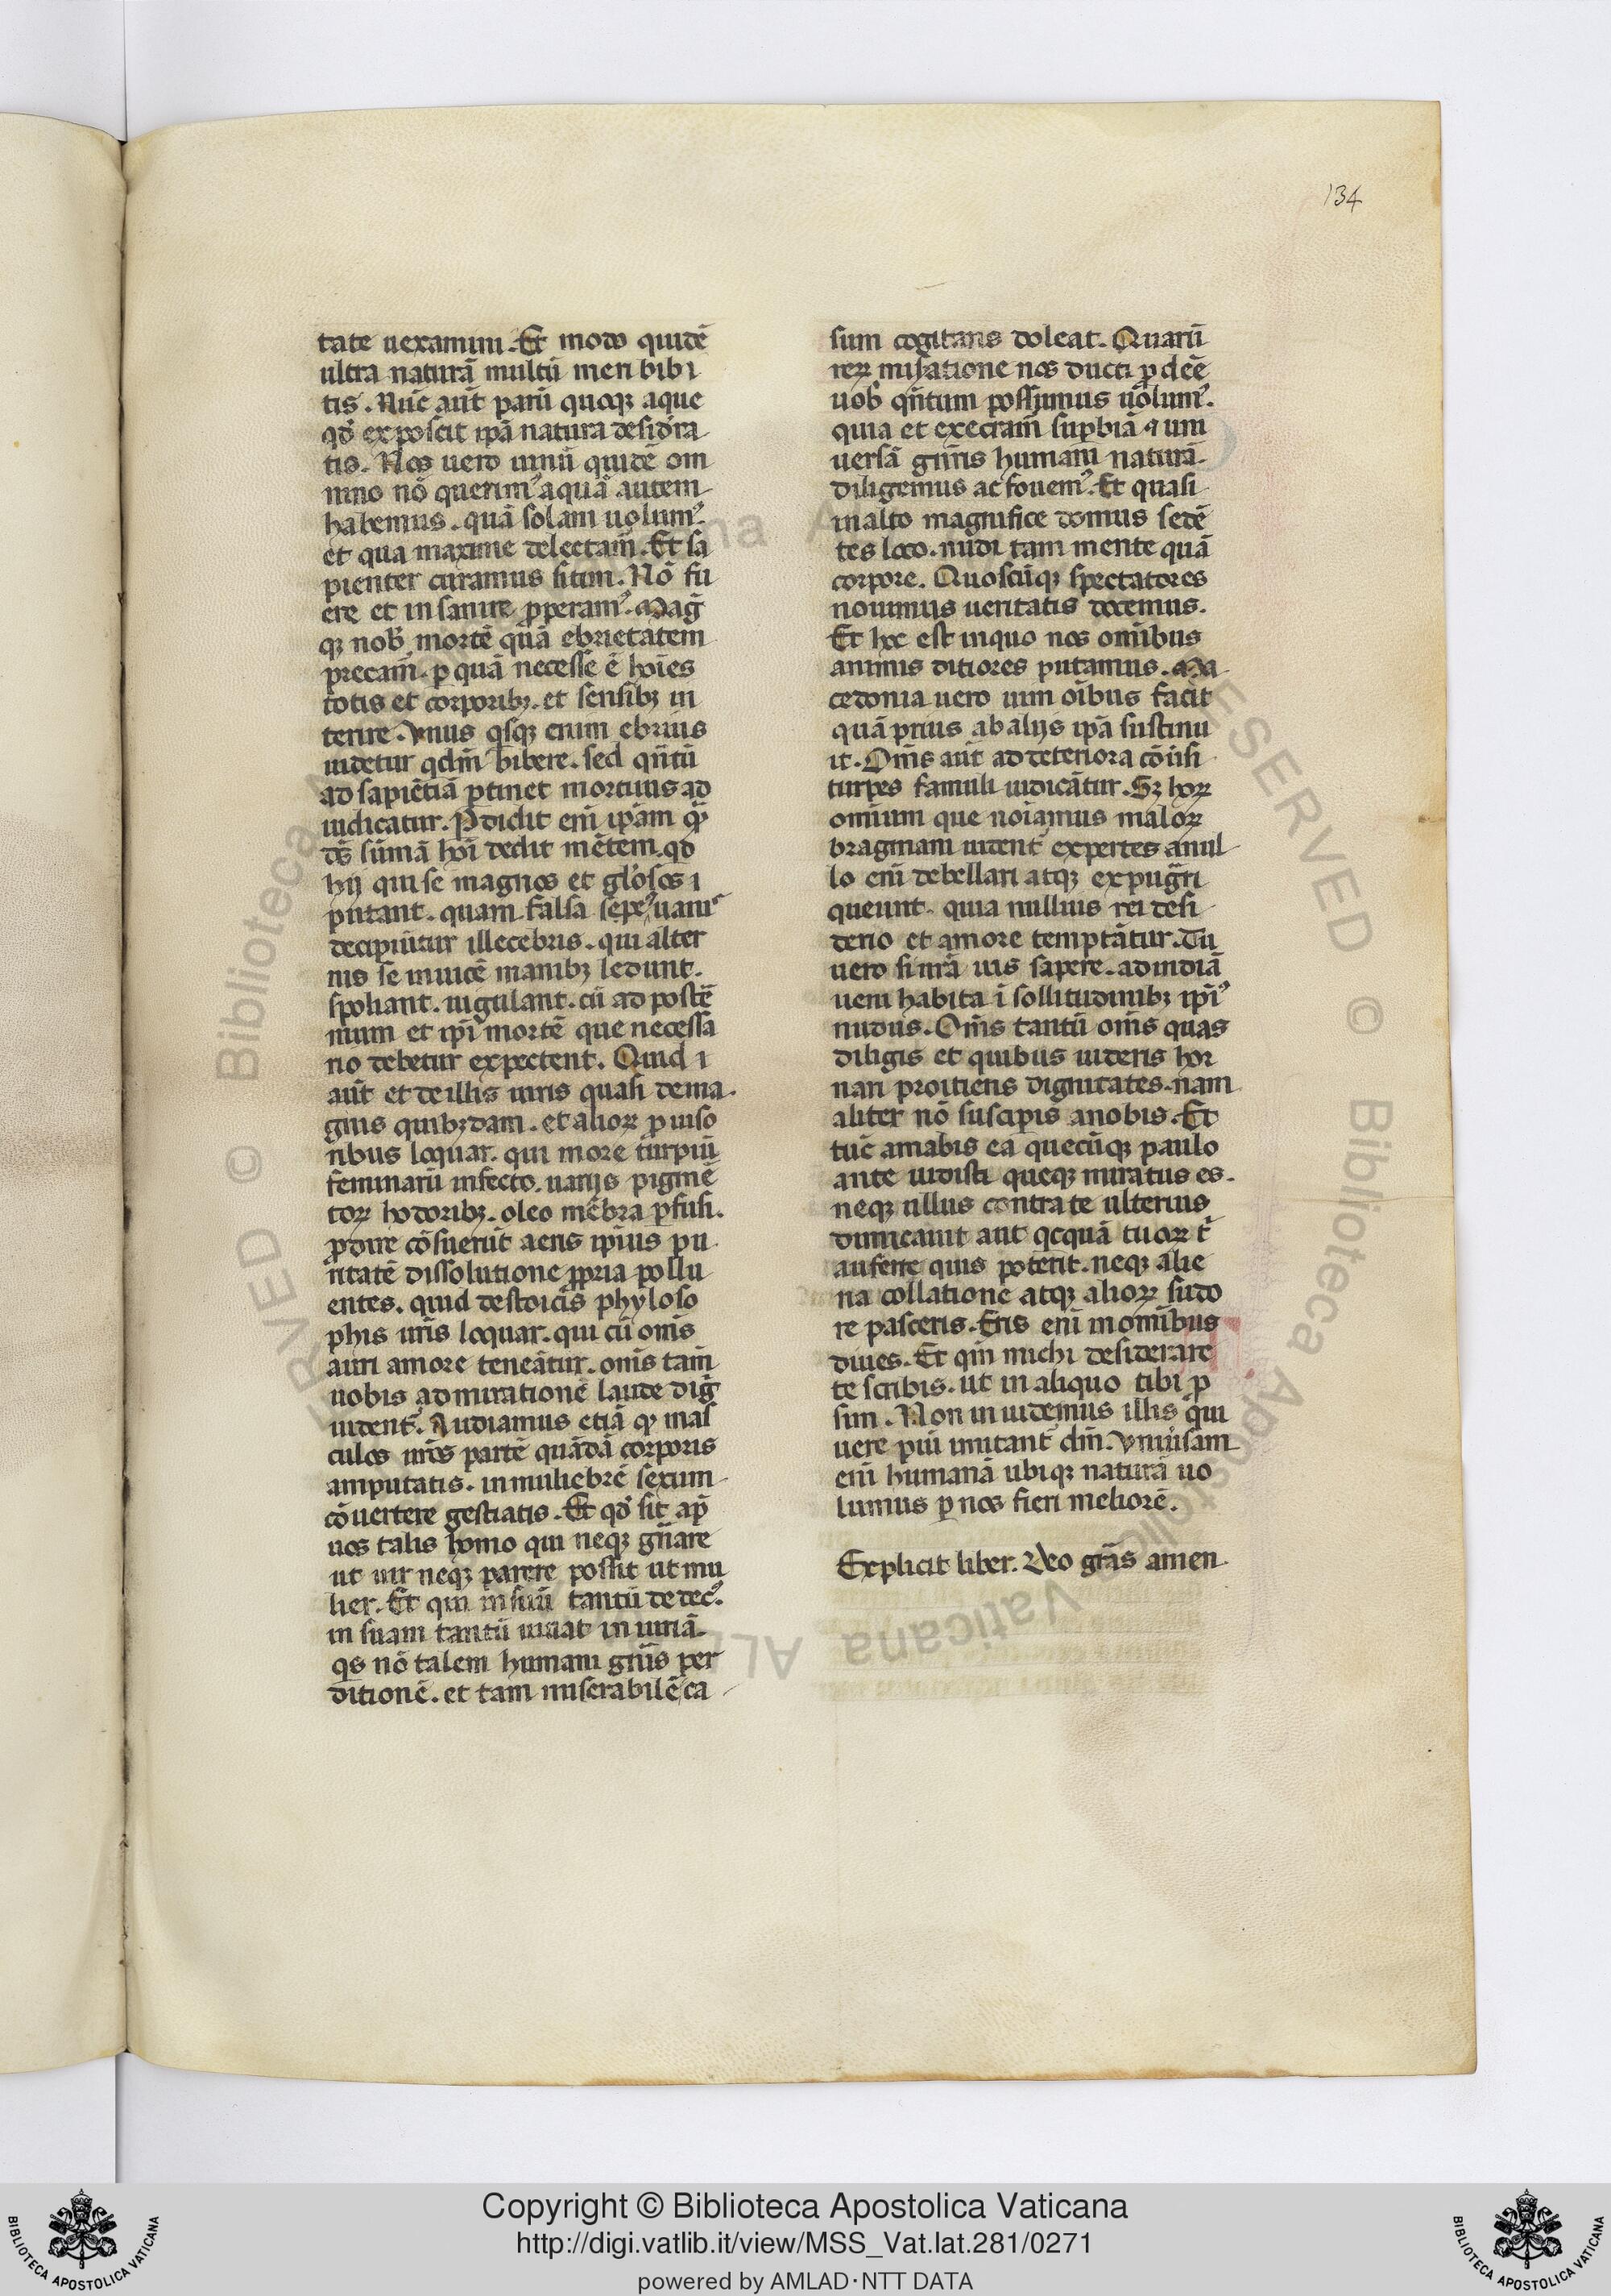 134
tate uexamini. Et modo quidē
ultra naturā multū meri bibi
tis. Nūc aūt parū quoqꝫ aque
qd̓ exposcit ip̄a natura desid̓ra
tis. Nos uero uinū quidē om
nino nō querimꝰ aquā autem
habemus. quā solam uolumꝰ.
et qua maxime delectam̄. Et sa
pienter curamus sitim. Nō fu
ere et insanire ꝓperamꝰ. Mag̓
qꝫ nob̓ mortē quā ebrietatem
precam̄. ꝑ quā necesse ē hoīes
totis et corporibꝫ. et sensibꝫ in
terire. Vnus qsqꝫ enim ebrius
uidetur qdm̄ bibere. sed qn̄tū
ad sapiētiā ꝑtinet mortuus ad
iudicatur. Ꝑdidit eni ip̄am qꝫ
ds̄ sūmā hoī dedit mētem. qd
hij qui se magnos et gl̓osos i
putant. quam falsa sepeꝰ uanis
decipiūtur illecebris. qui alter
nis se inuicē manibꝫ ledunt.
spoliant. iugulant. cū ad postē
mum et ip̄i mortē que necessa
rio debetur expectent. Quid i
aūt et de illis uiris quasi de ma
gnis quibꝫdam. et alioꝝ ꝑuiso
ribus loquar. qui more turpiū
feminarū infecto. uarijs pigmē
toꝝ hodoribꝫ. oleo mēbra ꝑfusi.
ꝓdire cōsuerūt aeris ipius pu
ritatē dissolutione ꝓpria pollu
entes. quid de stoicis phyloso
phis ur̄is loquar. qui cū om̄s
auri amore teneātur. om̄s tam̄
uobis admirationē laude dig̓
uident̓. Audiamus etiā qꝫ mas
culos ur̄os partē quādā corporis
amputatis. in muliebrē sexum
cōuertere gestiatis. Et qd̓ sit ap̄
uos talis homo qui neqꝫ gn̄are
ut uir neqꝫ parere possit ut mu
lier. Et qui in suū tantū dedecꝰ.
in suam tantū uiuat iniuriā.
qs nō talem humani gn̄is per
ditionē. et tam miserabilē ca
sum cogitans doleat. Quarū
reꝝ mis̓atione nos ducti ꝓdeē
uob̓ qn̄tum possumus uolumꝰ.
quia et execram̄ suꝑbiā ⁊ uni
uersā gn̄ris humani naturā
diligemus ac fouemꝰ. Et quasi
in alto magnifice domus sedē
tes loco. nudi tam mente quā
corpore. Quoscūqꝫ spectatores
nouimus ueritatis docemus.
Et hoc est in quo nos omībus
animis ditiores putamus. Ma
cedonia uero uim oībus facit
quā prius ab alijs ip̄a sustinu
it. Om̄s aūt ad deteriora cōu̓si
turpes famuli iudicātur. Sꝫ hoꝝ
omium que noiamus maloꝝ
bragmani uident̓ expertes a nul
lo eni debellari atqꝫ expug̓ri
queunt. quia nullius rei desi
derio et amore temptātur. Tu
uero si nrā uis sapere. ad indiā
ueni habita ī sollitudinibꝫ ip̄iꝰ
nudus. Om̄s tantū om̄s quas
diligis et quibus uideris hor
nari proitiens dignitates. nam
aliter nō suscipis a nobis. Et
tūc amabis ea quecūqꝫ paulo
ante uidisti queqꝫ miratus es.
neqꝫ ullus contra te ulterius
dimicauit aut qcquā tuoꝝ t̓
auferre quis poterit. neqꝫ alie
na collatione atqꝫ alioꝝ sudo
re pasceris. Eris eni in omībus
diues. Et qm̄ michi desiderare
te scribis. ut in aliquo tibi ꝓ
sim. Non inuidemus illis qui
uere pīi imitant̓ dm̄. Vniu̓sam
eni humanā ubiqꝫ naturā uo
lumus ꝑ nos fieri meliorē.
Explicit liber. Deo grās amen
© Biblioteca Apostolica Vaticana ALL RIGHTS RESERVED
Copyright © Biblioteca Apostolica Vaticana
http://digi.vatlib.it/view/MSS_Vat.lat.281/0271
powered by AMLAD·NTT DATA
BIBLIOTECA APOSTOLICA VATICANA
BIBLIOTECA APOSTOLICA VATICANA